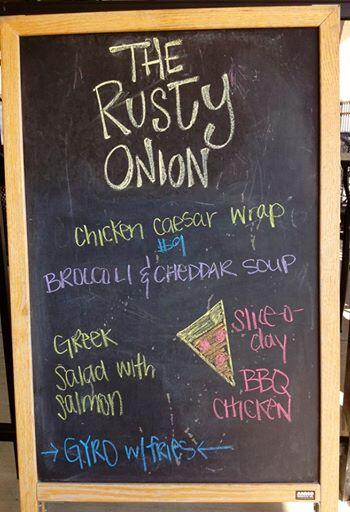 THE
Rusty
ONION
chicken caesar wrap
$9
BROCCOLI & CHEDDAR SOUP
GREEK
salad with
salmon
Slice-o-
day
BBQ
CHICKEN
→ GYRO w/fries ←